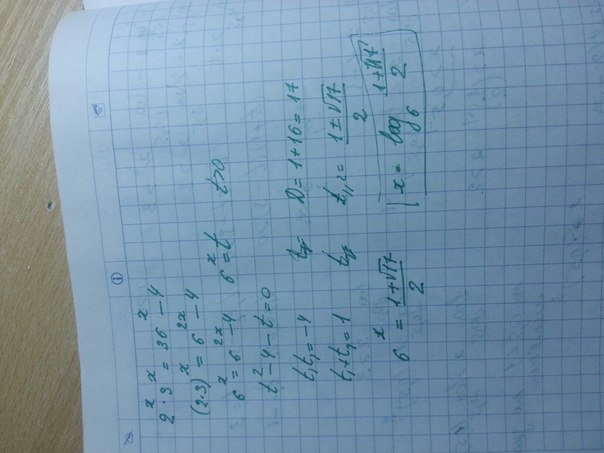 2ˣ·3ˣ = 36ˣ - 4
(2·3)ˣ = 6²ˣ - 4
6ˣ = 6²ˣ - 4 6ˣ = t t>0
t² - 4 - t = 0
t₁t₂ = -4 D = 1+16 = 17
t₁+t₂ = 1 t₁,₂ = (1±√17)/2
6ˣ = (1+√17)/2 x = log₆ (1+√17)/2